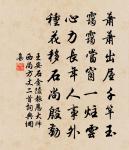 蕭蕭出屋千竿玉
靄靄當窗一炷雲
心力長年人事外
種花移石尚殷勤
王安石金陵報恩大師
西堂方丈二首詞典調
集